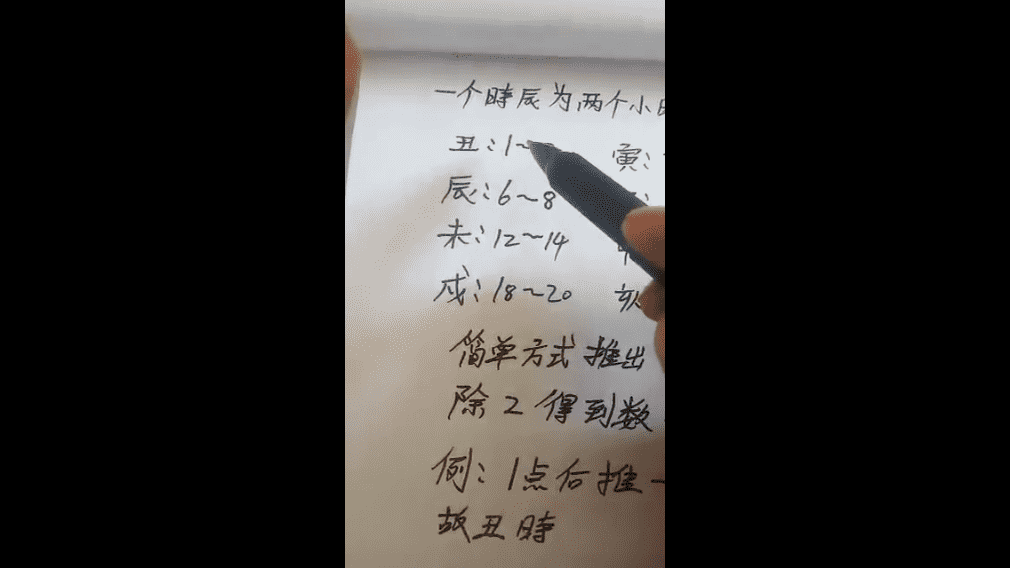 一个時辰为两个小
丑:1~ 寅:
辰:6~8
未:12~14
戍:18~20 亥
简单方式推出
除2得到数
例:1点后推一
故丑時